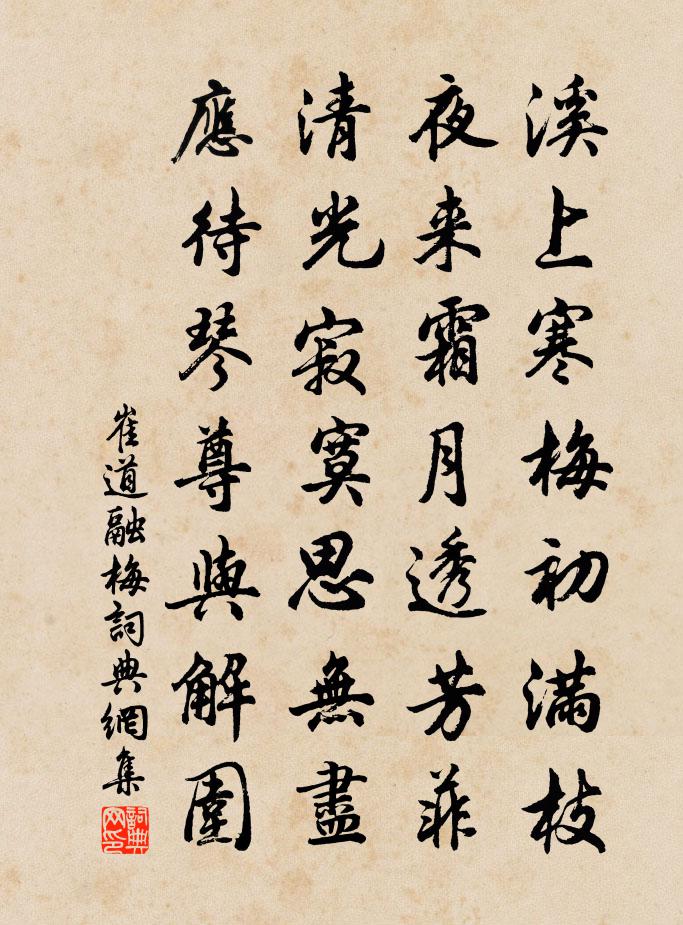 溪上寒梅初满枝
夜来霜月透芳菲
清光寂寞思無盡
應待琴尊與解圍
崔道融梅詞典網集
詞典网印